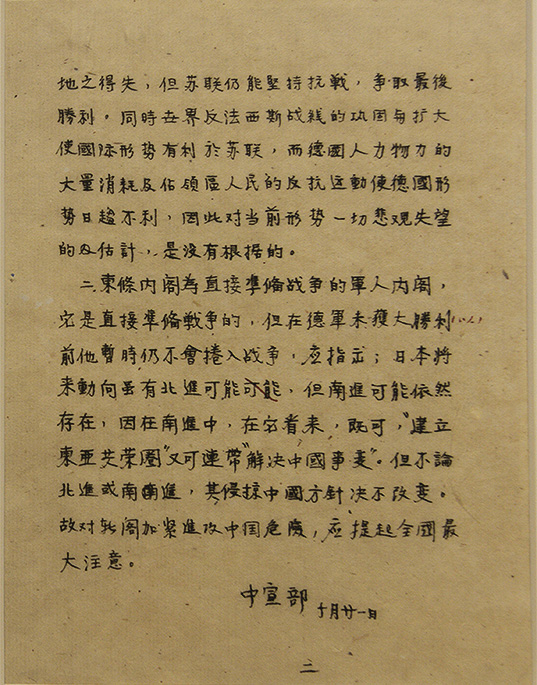 地之得失，但苏联仍能堅持抗戰，争取最後
勝利。同時世界反法西斯战綫的巩固与扩大
使國际形勢有利於苏联，而德國人力物力的
大量消耗及佔領區人民的反抗运動使德國形
勢日趨不利，因此对当前形勢一切悲观失望
的估計，是没有根据的。
二東條内阁為直接準備战争的軍人内阁，
它是直接準備戰争的，但在德軍未獲大勝利
前他暫時仍不會捲入战争，应指出；日本将
来動向虽有北進可能可能，但南進可能依然
存在，因在南進中，在它看来，既可，"建立
東亜共荣圈"又可連带"解决中國事变"。但不論
北進或南進，其侵掠中國方針决不改变。
故对新阁加紧進攻中国危险，应提起全國最
大注意。
中宣部 十月廿一日
二